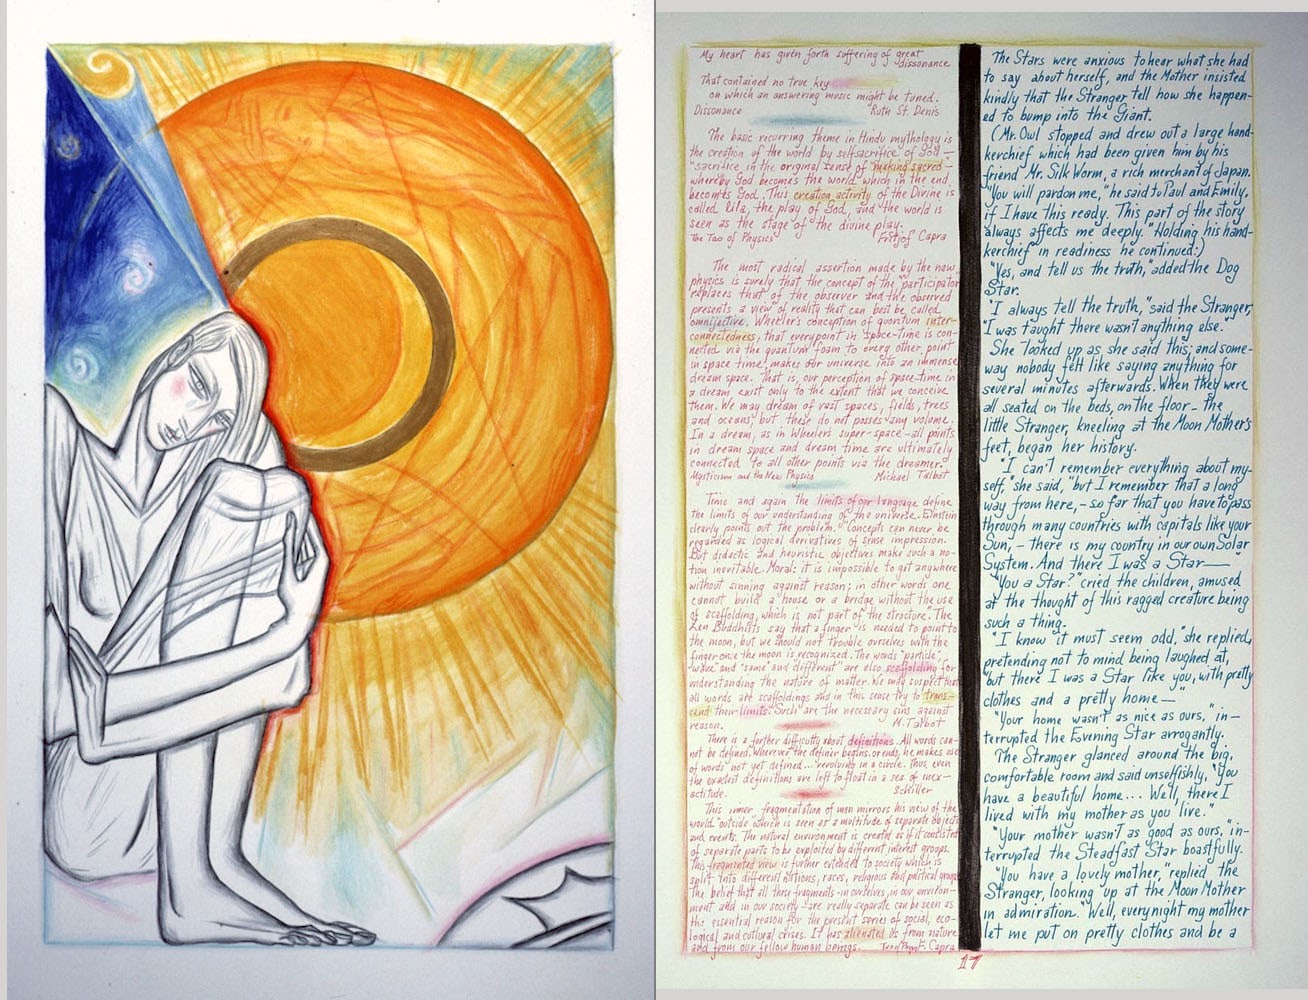 My heart has given forth suffering of great
dissonance
That contained no true key
on which an answering music might be tuned.
Dissonance Ruth St. Denis
The basic recurring theme in Hindu mythology is
the creation of the world by self-sacrifice of God—
"sacrifice" in the original sense of "making sacred"—
whereby God becomes the world which in the end
becomes God. This creation activity of the Divine is
called lila, the play of God, and the world is
seen as the stage of the divine play.
The Tao of Physics Fritjof Capra
The most radical assertion made by the new
physics is surely that the concept of the "participator"
replaces that of the observer and the observed
presents a view of reality that can best be called
omnijective. Wheeler's conception of quantum inter-
connectedness, that every point in space-time is con-
nected via the quantum foam to every other point
in space time, makes our universe into an immense
dream space. That is, our perception of space-time in
a dream exist only to the extent that we conceive
them. We may dream of vast spaces, fields, trees
and oceans, but these do not posses any volume.
In a dream, as in Wheeler's super-space-all points
in dream space and dream time are ultimately
connected to all other points via the dreamer.
Mysticism and the New Physics Michael Talbot
Time and again the limits of our language define
the limits of our understanding of the universe. Einstein
clearly points out the problem. "Concepts can never be
regarded as logical derivatives of sense impression.
But didactic and heuristic objectives make such a no-
tion inevitable. Moral: it is impossible to get anywhere
without sinning against reason; in other words one
cannot build a house or a bridge without the use
of scaffolding, which is not part of the structure." The
Zen Buddhists say that a finger is needed to point to
the moon, but we should not trouble ourselves with the
finger once the moon is recognized. The words "particle",
"wave" and "same" and different" are also scaffolding for
understanding the nature of matter. We may suspect that
all words are scaffoldings and in this sense try to trans-
cend their limits. Such are the necessary sins against
reason. M. Talbot
There is a further difficulty about definitions. All words can-
not be defined. Wherever the definer begins, or ends, he makes use
of words not yet defined... revolving in a circle. Thus even
the exactest definitions are left to float in a sea of inex-
actitude. Schiller
This inner fragmentation of man mirrors his view of the
world "outside" which is seen as a multitude of separate objects
and events. The natural environment is created as if it consisted
of separate parts to be exploited by different interest groups.
This fragmented view is further extended to society which is
split into different nations, races, religious and political groups.
The belief that all these fragments-in ourselves, in our environ-
ment and in our society-are really separate can be seen as
the essential reason for the present series of social, eco-
logical and cultural crises. It has alienated us from nature
and from our fellow human beings. F. Capra
The Stars were anxious to hear what she had
to say about herself, and the Mother insisted
kindly that the Stranger tell how she happen-
ed to bump into the Giant.
(Mr. Owl stopped and drew out a large hand-
kerchief which had been given him by his
friend Mr. Silk Worm, a rich merchant of Japan.
"You will pardon me," he said to Paul and Emily,
if I have this ready. This part of the story
always affects me deeply." Holding his hand-
kerchief in readiness he continued:)
"Yes, and tell us the truth," added the Dog
Star.
"I always tell the truth," said the Stranger,
"I was taught there wasn't anything else."
She looked up as she said this; and some-
way nobody felt like saying anything for
several minutes afterwards. When they were
all seated on the beds, on the floor – the
little Stranger, kneeling at the Moon Mother's
feet, began her history.
"I can't remember everything about my-
self," she said, "but I remember that a long
way from here, – so far that you have to pass
through many countries with capitals like your
Sun, – there is my country in our own Solar
System. And there I was a Star— "
"You a Star?" cried the children, amused
at the thought of this ragged creature being
such a thing.
"I know it must seem odd," she replied,
pretending not to mind being laughed at,
"but there I was a Star like you, with pretty
clothes and a pretty home—"
"Your home wasn't as nice as ours," in-
terrupted the Evening Star arrogantly.
The Stranger glanced around the big,
comfortable room and said unselfishly, "You
have a beautiful home... Well, there I
lived with my mother as you live."
"Your mother wasn't as good as ours," in-
terrupted the Steadfast Star boastfully.
"You have a lovely mother," replied the
Stranger, looking up at the Moon Mother
in admiration. "Well, every night my mother
let me put on pretty clothes and be a
17